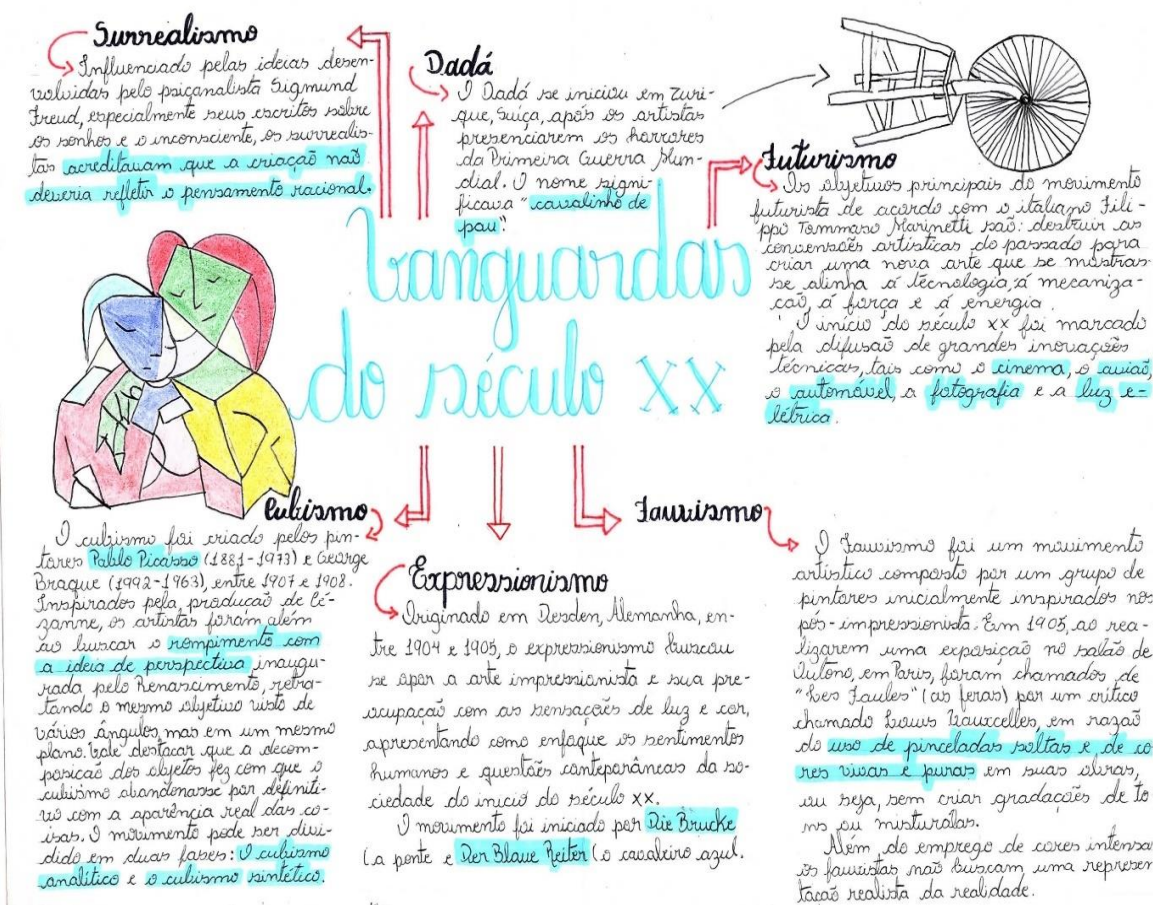 Surrealismo
Influenciado pelas ideias desen-
volvidas pelo psicanalista Sigmund
Freud, especialmente seus escritos sobre
os sonhos e o inconsciente, os surrealis-
tas acreditavam que a criação não
deveria refletir o pensamento racional.
Dadá
O Dadá se iniciou em Zuri-
que, Suíça, após os artistas
presenciarem os horrores
da Primeira Guerra Mun-
dial. O nome signi-
ficava "cavalinho de
pau".
Futurismo
Os objetivos principais do movimento
futurista de acordo com o italiano Fili-
ppo Tommaso Marinetti são: destruir as
convensões artísticas do passado para
criar uma nova arte que se mostras-
se alinha á tecnologia, á mecaniza-
ção, á força e á energia.
O início do século XX foi marcado
pela difusão de grandes inovações
técnicas, tais como o cinema, o avião,
o automóvel, a fotografia e a luz e-
létrica.
Vanguardas
do século XX
Cubismo
O cubismo foi criado pelos pin-
tores Pablo Picasso (1881-1973) e George
Braque (1992-1963), entre 1907 e 1908.
Inspirados pela produção de Cé-
zanne, os artistas foram além
ao buscar o rompimento com
a ideia de perspectiva inaugu-
rada pelo Renascimento, retra-
tando o mesmo objetivo visto de
vários ângulos, mas em um mesmo
plano. Vale destacar que a decom-
posição dos objetos fez com que o
cubismo abandonasse por definiti-
vo com a aparência real das co-
isas. O movimento pode ser divi-
dido em duas fases: O cubismo
analítico e o cubismo sintético.
Expressionismo
Originado em Desden, Alemanha, en-
tre 1904 e 1905, o expressionismo buscou
se opor a arte impressionista e sua pre-
ocupação com as sensações de luz e cor,
apresentando como enfoque os sentimentos
humanos e questões conteporâneas da so-
ciedade do inicio do século XX.
O movimento foi iniciado por Die Brucke
(a ponte e Der Blaue Reiter (o cavaleiro azul.
Fauvismo
O Fauvismo foi um movimento
artístico composto por um grupo de
pintores inicialmente inspirados nos
pós-impressionista. Em 1905, ao rea-
lizarem uma exposição no salão de
Outono, em Paris, foram chamados de
"Les Faules" (as feras) por um crítico
chamado Louis Vauxcelles, em razão
do uso de pinceladas soltas e de co
res vivas e puras em suas obras,
ou seja, sem criar gradações de to
ns ou misturálas.
Além do emprego de cores intensa
os fauvistas não buscam uma represen
tação realista da realidade.